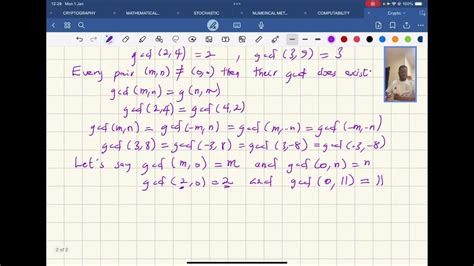 12:28 Mon 1 Jan
CRYPTOGRAPHY MATHEMATICAL... STOCHASTIC NUMERICAL MET... COMPUTABILITY Crypto
gcf(2,4)=2 , gcf(3,9)=3
Every pair (m,n) ≠ (0,0) then their gcf does exist.
gcf(m,n)=g(n,m)
gcf(2,4)=gcf(4,2)
gcf(m,n)=gcf(-m,n)=gcf(m,-n)=gcf(-m,-n)
gcf(3,8)=gcf(-3,8)=gcf(3,-8)=gcf(-3,-8)
Let's say gcf(m,0)=m and gcf(0,n)=n
gcf(2,0)=2 and gcf(0,11)=11
2 of 2